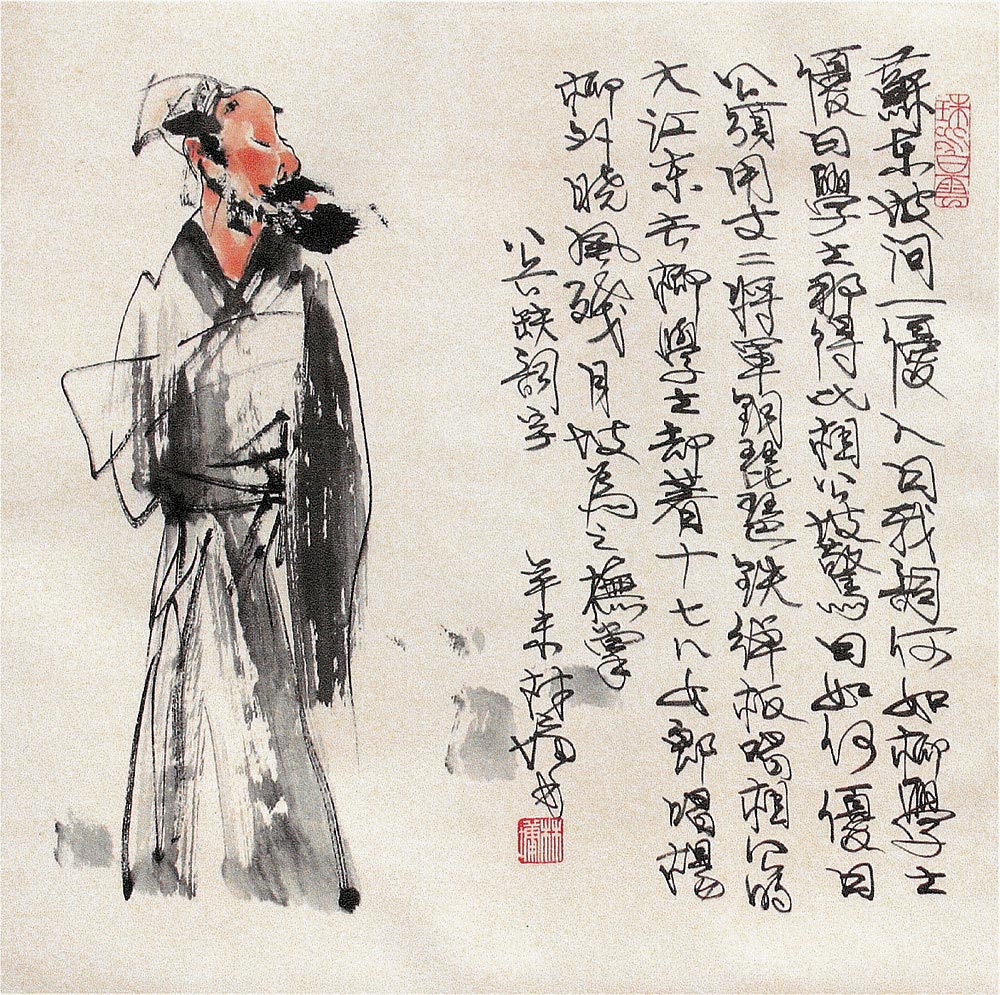 蘇東坡问一優人曰我詞何如柳學士
優曰學士那得比相公坡驚曰如何優曰
公須用丈二將軍銅琵琶鉄绰板唱相公的
大江東去柳學士却着十七八女郎唱楊
柳外晓風殘月坡為之撫掌
公缺詞字 辛未林墉书
林墉